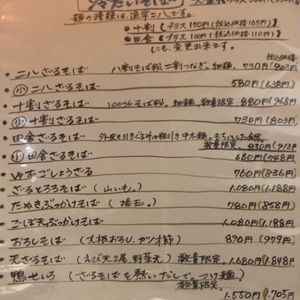 冷たいそば
麺の種類は、通常二八です。
・十割（プラス150円（税込価格165円）
・田舎（プラス100円（税込価格110円）
にも、変更出来ます。
税込価格
・二八ざるそば 八割そば粉、二割つなぎ。細麺。 730円（803円
・小 二八ざるそば 580円（638円
・十割ざるそば 100%そば粉。細麺。数量限定 880円（968円
・小 十割ざるそば 730円（803円
・田舎ざるそば
数量限定 830円（913円
・小 田舎ざるそば 680円（748円
760円（836円
・ざるとろろそば（山いも。） 1,080円（1,188円
・たぬきぶっかけそば（揚玉。） 780円（858円
・ごぼ天ぶっかけそば 1,080円（1,188円
・おろしそば（大根おろし、カツオ節） 890円（979円
・天ざるそば（えび天2尾、野菜天）数量限定。 1,680円（1,848円
・鴨せいろ（ざるそばを熱いだしで。つけ麺）
数量限定。 1,550円（1,705円